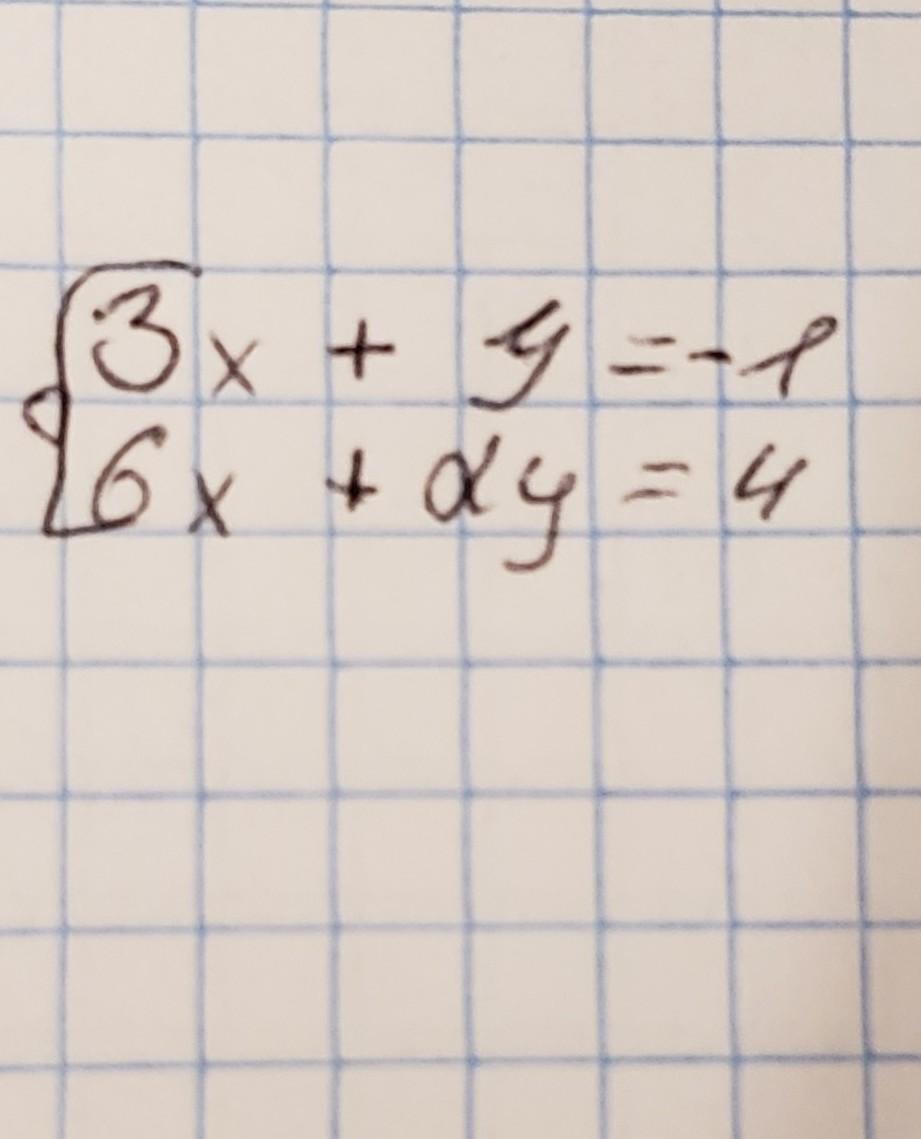 3x + y = -1
6x + αy = 4